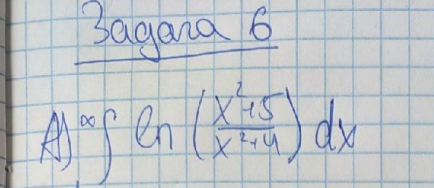 Задача 6
А) ∞∫ ln (x²+5 / x²+4) dx